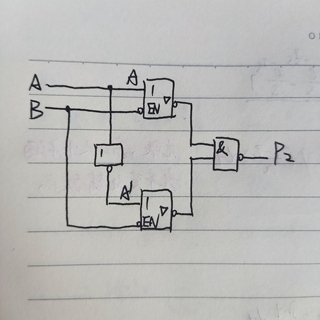 A A 1 ▷
B EN
& P₂
1
A' 1 ▷
EN